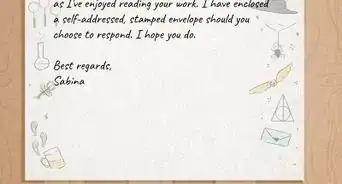 as I've enjoyed reading your work. I have enclosed
a self-addressed, stamped envelope should you
choose to respond. I hope you do.
Best regards,
Sabina